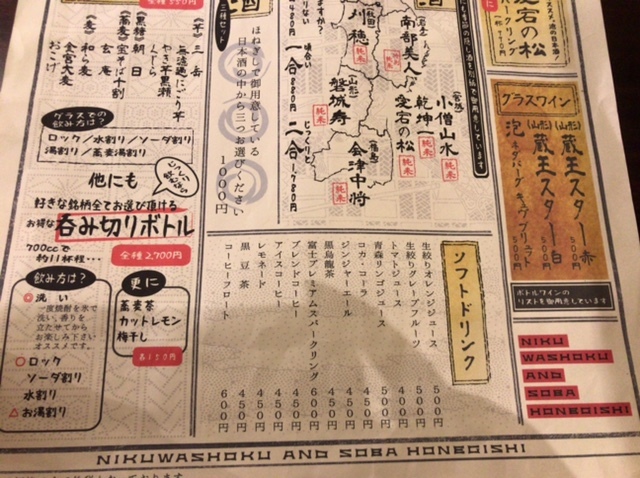 愛宕の松
スパークリング
グラスワイン
(山形)蔵王スター 赤 500円
(山形)蔵王スター 白 500円
泡 キタバーグ キュヴ ブリュット 500円
ボトルワインの
リストを御用意しています
NIKU
WASHOKU
AND
SOBA
HONBOISHI
南部美人
刈穂
小僧山水
乾坤一
愛宕の松
(山形)
磐城寿
(福島)
会津中将
純米
一合 880円
じっくりと
二合 1,780円
ほねぎしで御用意している
日本酒の中から三つお選びください
1000円
ソフトドリンク
生絞りオレンジジュース 500円
生絞りグレープフルーツ 500円
トマトジュース 450円
青森リンゴジュース 500円
コカ・コーラ 450円
ジンジャーエール 450円
黒烏龍茶 400円
富士プレミアムスパークリング 600円
ブレンドコーヒー 400円
アイスコーヒー 450円
レモネード 450円
黒豆茶 450円
コーヒーフロート 600円
(芋)三岳
無濾過にごり芋
やき芋黒瀬
くじら
(黒糖)朝日
(蕎麦)宝そば十割
玄庵
(麦)和ら麦
金宮大麦
おこげ
グラスでの
飲み方は?
ロック/水割り/ソーダ割り
湯割り/蕎麦湯割り
他にも
好きな銘柄全てお選び頂ける
お得な呑み切りボトル
700ccで
約11杯程・・・
全種2,700円
飲み方は?
◎洗い
一度焼酎を氷で
洗い、香りを
立たせてから
お楽しみ下さい
オススメです。
○ロック
ソーダ割り
水割り
△お湯割り
更に
蕎麦茶
カットレモン
梅干し
各150円
NIKUWASHOKU AND SOBA HONBOISHI